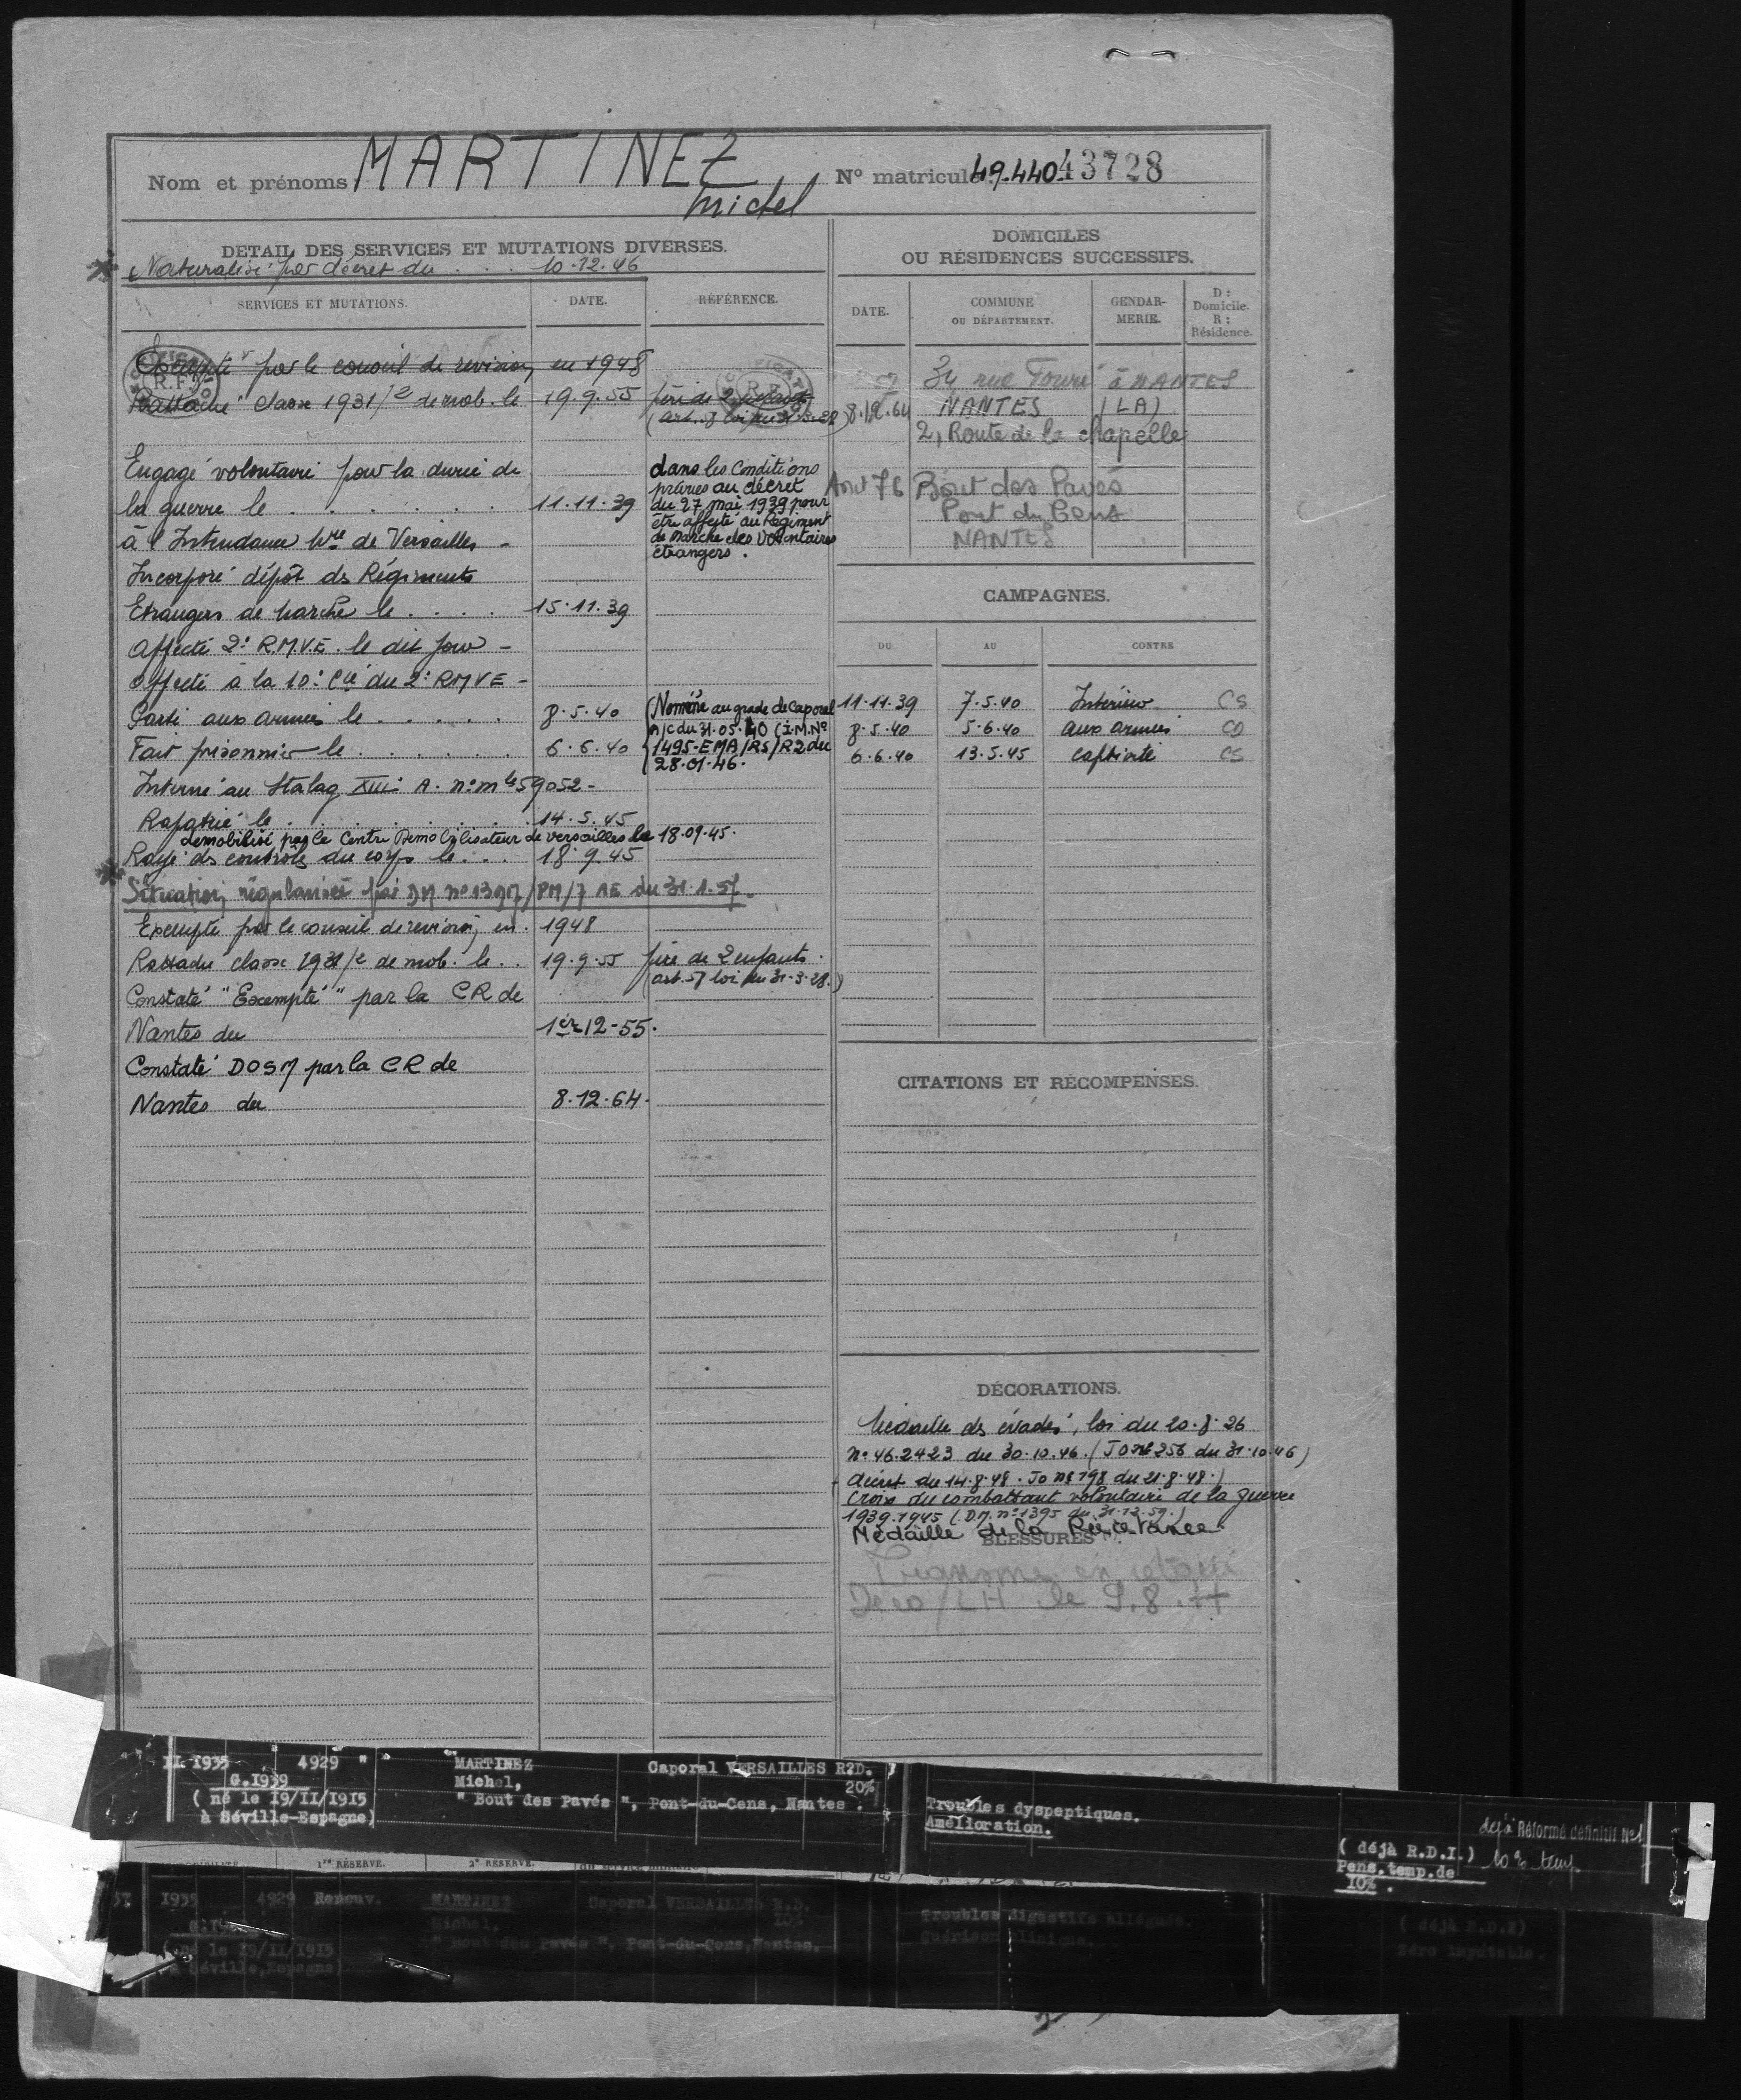 Nom et prénoms : MARTINEZ
Michel
N° matricule 49.440 43728
DETAIL DES SERVICES ET MUTATIONS DIVERSES.
Naturalisé par décret du . . . 10.12.46
SERVICES ET MUTATIONS. DATE. RÉFÉRENCE.
Exempté par le conseil de revision en 1948
Rattaché classe 1931/2 de mob. le 19.9.55 père de 2 enfants
Engagé volontaire pour la durée de
la guerre le . . . . . . 11.11.39
à l'Intendance Mre de Versailles -
dans les conditions
prévues au décret
du 27 mai 1939 pour
être affecté au Régiment
de marche des volontaires
étrangers.
Incorporé dépôt ds Régiments
Etrangers de Marche le . . . . 15.11.39
Affecté 2e R.M.V.E. le dit jour -
Affecté à la 10e Cie du 2e RMVE -
Parti aux armées le . . . . . 8.5.40
(Nommé au grade de Caporal
A/C du 31.05.40 (I.M.N°
1495-EMA/RS/R2 du
28.01.46.
Fait prisonnier le . . . . . . 6.6.40
Interné au Stalag XIII A. n° mle 59052 -
Rapatrié le . . . . . . 14.5.45
démobilisé par le Centre Démobilisateur de versailles le 18.09.45.
Rayé ds contrôles du corps le . . . 18.9.45
Situation régularisée par DM n° 1397/PM/7 AE du 31.1.57.
Exempté par le conseil de revision, en . 1948
Rattaché classe 1931/2 de mob. le . . 19.9.55 père de 2 enfants.
(art. 57 loi du 31.3.28.)
Constaté "Exempté" par la CR de
Nantes du 1er-12-55.
Constaté DOSM par la CR de
Nantes du 8.12.64.
DOMICILES
OU RÉSIDENCES SUCCESSIFS.
DATE. COMMUNE OU DÉPARTEMENT. GENDAR-MERIE. D : Domicile. R : Résidence.
34 rue Fouré à NANTES
8.12.64 NANTES (LA)
2, Route de la chapelle
Aout 76 Bout des Pavés
Pont du Cens
NANTES
CAMPAGNES.
DU AU CONTRE
11.11.39 7.5.40 Intérieur CS
8.5.40 5.6.40 aux armées CD
6.6.40 13.5.45 captivité CS
CITATIONS ET RÉCOMPENSES.
DÉCORATIONS.
Médaille des évadés, loi du 20.8.26
n° 46.2423 du 30.10.46. (JO N° 256 du 31.10.46)
décret du 14.8.48. JO N° 198 du 21.8.48.)
Croix du combattant volontaire de la guerre
1939.1945 (D.M. n° 1395 du 31.12.59.)
Médaille de la Résistance.
BLESSURES
le 9.8.77
II. 1935 4929 " " MARTINEZ Caporal VERSAILLES R?D.
G.1939 Michel, 20%
( né le 19/II/1915 " Bout des Pavés ", Pont-du-Cens, Nantes .
à Séville-Espagne)
Troubles dyspeptiques.
Amélioration.
( déjà R.D.I.)
Pens.temp.de
10% .
déjà Réformé définitif N°1
10 % temp
1re RÉSERVE. 2e RÉSERVE.
1935 4929 Renouv. MARTINEZ Caporal VERSAILLES R.D.
Michel, 10%
( né le 19/II/1915 " Bout des Pavés ", Pont-du-Cens, Nantes.
à Séville, Espagne)
Troubles digestifs allégués.
Guérison clinique.
( déjà R.D.I)
Zéro imputable.